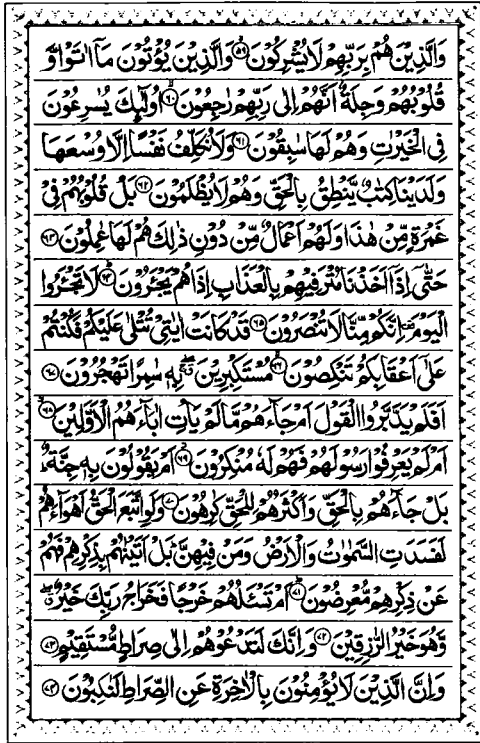 وَالَّذِيْنَ هُمْ بِرَبِّهِمْ لَا يُشْرِكُوْنَ ﴿۵۹﴾ وَالَّذِيْنَ يُؤْتُوْنَ مَاۤ اٰتَوْا وَّ
قُلُوْبُهُمْ وَجِلَةٌ اَنَّهُمْ اِلٰى رَبِّهِمْ رٰجِعُوْنَ ﴿۶۰﴾ اُولٰٓئِكَ يُسٰرِعُوْنَ
فِى الْخَيْرٰتِ وَهُمْ لَهَا سٰبِقُوْنَ ﴿۶۱﴾ وَلَا نُكَلِّفُ نَفْسًا اِلَّا وُسْعَهَا
وَلَدَيْنَا كِتٰبٌ يَّنْطِقُ بِالْحَقِّ وَهُمْ لَا يُظْلَمُوْنَ ﴿۶۲﴾ بَلْ قُلُوْبُهُمْ فِيْ
غَمْرَةٍ مِّنْ هٰذَا وَلَهُمْ اَعْمَالٌ مِّنْ دُوْنِ ذٰلِكَ هُمْ لَهَا عٰمِلُوْنَ ﴿۶۳﴾
حَتّٰىۤ اِذَاۤ اَخَذْنَا مُتْرَفِيْهِمْ بِالْعَذَابِ اِذَا هُمْ يَجْـَٔرُوْنَ ﴿۶۴﴾ لَا تَجْـَٔرُوا
الْيَوْمَ اِنَّكُمْ مِّنَّا لَا تُنْصَرُوْنَ ﴿۶۵﴾ قَدْ كَانَتْ اٰيٰتِيْ تُتْلٰى عَلَيْكُمْ فَكُنْتُمْ
عَلٰۤى اَعْقَابِكُمْ تَنْكِصُوْنَ ﴿۶۶﴾ مُسْتَكْبِرِيْنَ بِهٖ سٰمِرًا تَهْجُرُوْنَ ﴿۶۷﴾
اَفَلَمْ يَدَّبَّرُوا الْقَوْلَ اَمْ جَآءَهُمْ مَّا لَمْ يَاْتِ اٰبَآءَهُمُ الْاَوَّلِيْنَ ﴿۶۸﴾
اَمْ لَمْ يَعْرِفُوْا رَسُوْلَهُمْ فَهُمْ لَهٗ مُنْكِرُوْنَ ﴿۶۹﴾ اَمْ يَقُوْلُوْنَ بِهٖ جِنَّةٌ
بَلْ جَآءَهُمْ بِالْحَقِّ وَاَكْثَرُهُمْ لِلْحَقِّ كٰرِهُوْنَ ﴿۷۰﴾ وَلَوِ اتَّبَعَ الْحَقُّ اَهْوَآءَهُمْ
لَفَسَدَتِ السَّمٰوٰتُ وَالْاَرْضُ وَمَنْ فِيْهِنَّ بَلْ اَتَيْنٰهُمْ بِذِكْرِهِمْ فَهُمْ
عَنْ ذِكْرِهِمْ مُّعْرِضُوْنَ ﴿۷۱﴾ اَمْ تَسْـَٔلُهُمْ خَرْجًا فَخَرَاجُ رَبِّكَ خَيْرٌ
وَّهُوَ خَيْرُ الرّٰزِقِيْنَ ﴿۷۲﴾ وَاِنَّكَ لَتَدْعُوْهُمْ اِلٰى صِرَاطٍ مُّسْتَقِيْمٍ ﴿۷۳﴾
وَاِنَّ الَّذِيْنَ لَا يُؤْمِنُوْنَ بِالْاٰخِرَةِ عَنِ الصِّرَاطِ لَنٰكِبُوْنَ ﴿۷۴﴾